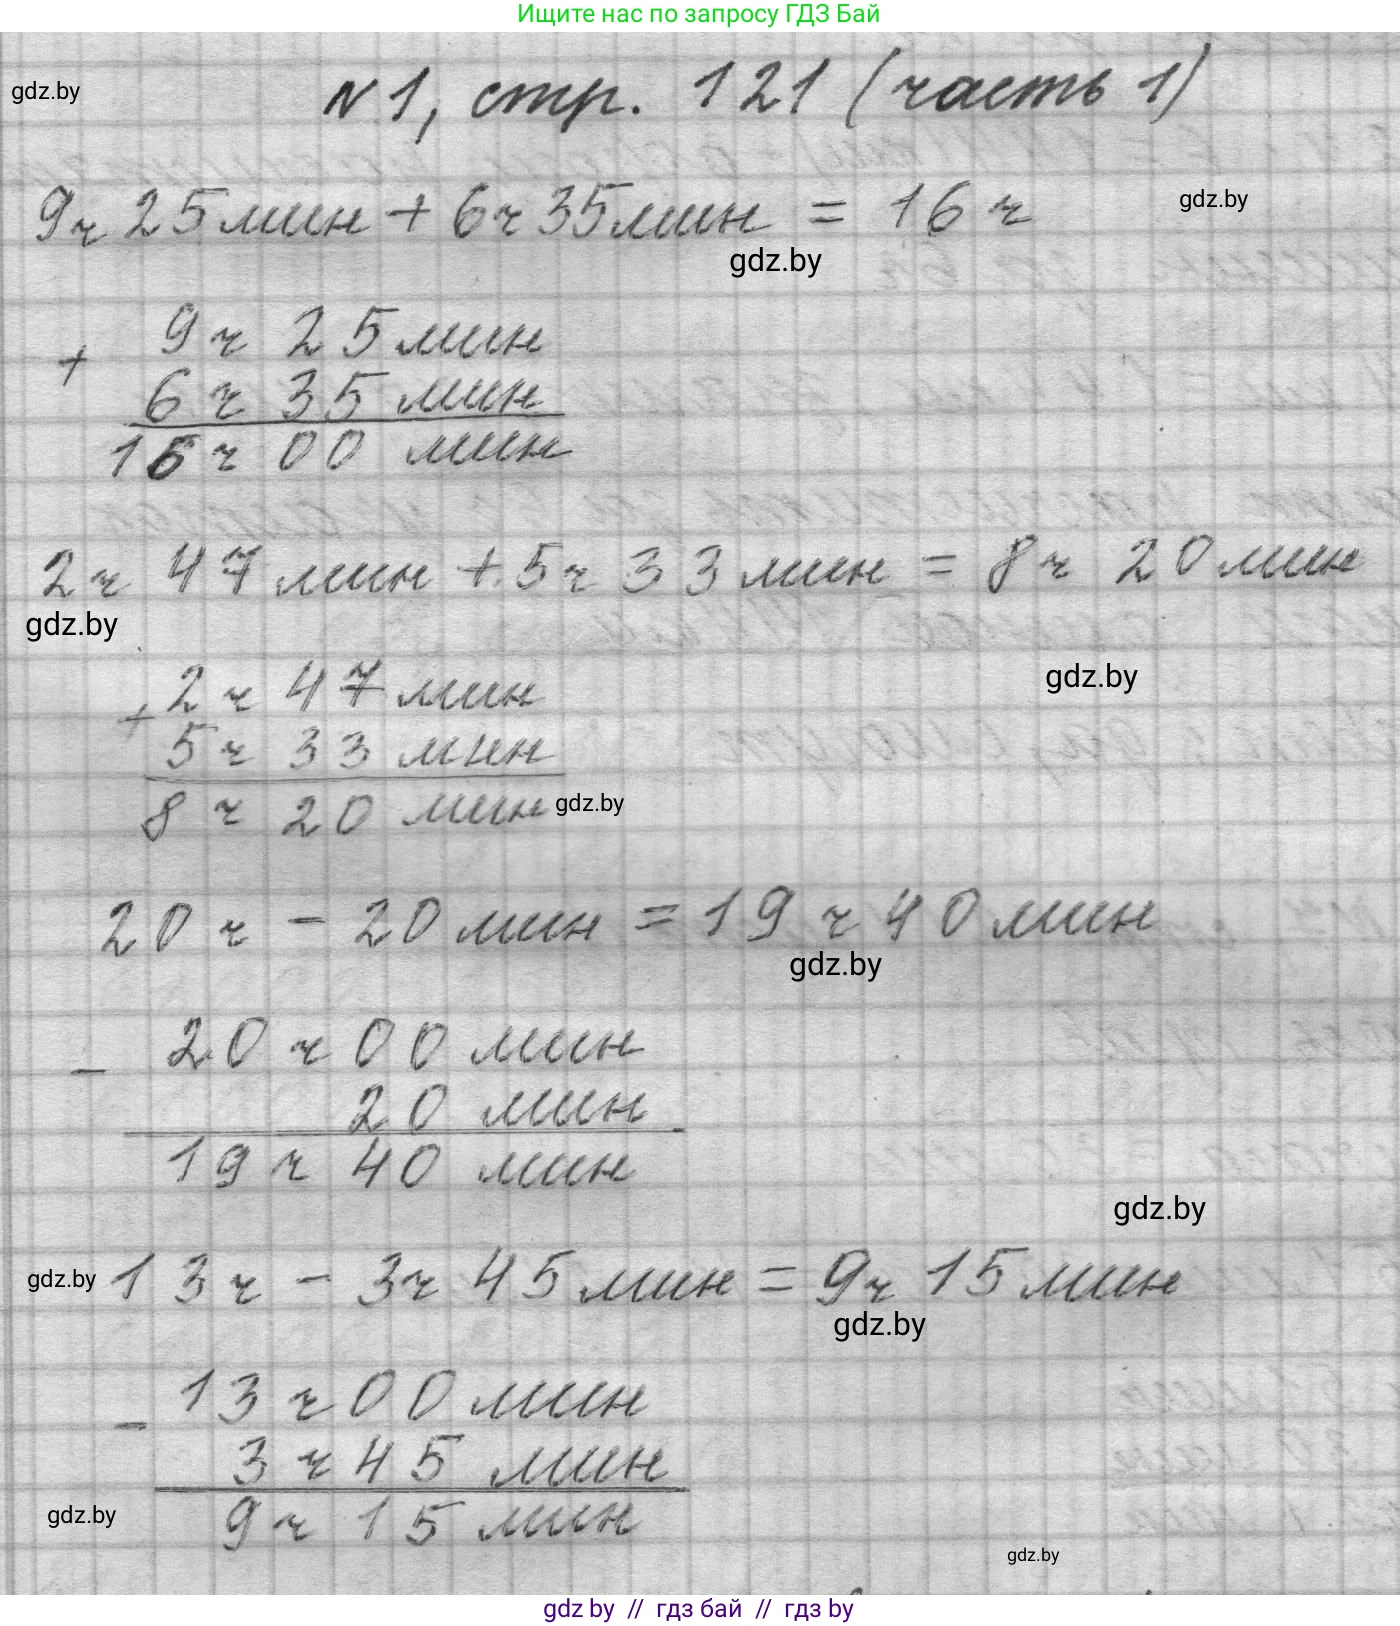 Ищите нас по запросу ГДЗ Бай
N1, стр. 121 (часть 1)
gdz.by
9ч 25 мин + 6ч 35 мин = 16 ч
gdz.by
gdz.by
9ч 25 мин
+
6ч 35 мин
16ч 00 мин
2ч 47 мин + 5ч 33 мин = 8ч 20 мин
gdz.by
gdz.by
2ч 47 мин
+
5ч 33 мин
8ч 20 мин
gdz.by
20ч - 20 мин = 19ч 40 мин
gdz.by
20ч 00 мин
-
20 мин
19ч 40 мин
gdz.by
gdz.by
13ч - 3ч 45 мин = 9ч 15 мин
gdz.by
13ч 00 мин
-
3ч 45 мин
9ч 15 мин
gdz.by
gdz.by
gdz by // гдз бай // гдз by